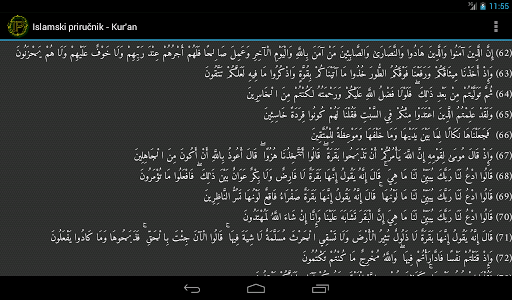 11:55
Islamski priručnik - Kur'an
(62) إِنَّ الَّذِينَ آمَنُوا وَالَّذِينَ هَادُوا وَالنَّصَارَىٰ وَالصَّابِئِينَ مَنْ آمَنَ بِاللَّهِ وَالْيَوْمِ الْآخِرِ وَعَمِلَ صَالِحًا فَلَهُمْ أَجْرُهُمْ عِنْدَ رَبِّهِمْ وَلَا خَوْفٌ عَلَيْهِمْ وَلَا هُمْ يَحْزَنُونَ
(63) وَإِذْ أَخَذْنَا مِيثَاقَكُمْ وَرَفَعْنَا فَوْقَكُمُ الطُّورَ خُذُوا مَا آتَيْنَاكُمْ بِقُوَّةٍ وَاذْكُرُوا مَا فِيهِ لَعَلَّكُمْ تَتَّقُونَ
(64) ثُمَّ تَوَلَّيْتُمْ مِنْ بَعْدِ ذَٰلِكَ ۖ فَلَوْلَا فَضْلُ اللَّهِ عَلَيْكُمْ وَرَحْمَتُهُ لَكُنْتُمْ مِنَ الْخَاسِرِينَ
(65) وَلَقَدْ عَلِمْتُمُ الَّذِينَ اعْتَدَوْا مِنْكُمْ فِي السَّبْتِ فَقُلْنَا لَهُمْ كُونُوا قِرَدَةً خَاسِئِينَ
(66) فَجَعَلْنَاهَا نَكَالًا لِمَا بَيْنَ يَدَيْهَا وَمَا خَلْفَهَا وَمَوْعِظَةً لِلْمُتَّقِينَ
(67) وَإِذْ قَالَ مُوسَىٰ لِقَوْمِهِ إِنَّ اللَّهَ يَأْمُرُكُمْ أَنْ تَذْبَحُوا بَقَرَةً ۖ قَالُوا أَتَتَّخِذُنَا هُزُوًا ۖ قَالَ أَعُوذُ بِاللَّهِ أَنْ أَكُونَ مِنَ الْجَاهِلِينَ
(68) قَالُوا ادْعُ لَنَا رَبَّكَ يُبَيِّنْ لَنَا مَا هِيَ ۚ قَالَ إِنَّهُ يَقُولُ إِنَّهَا بَقَرَةٌ لَا فَارِضٌ وَلَا بِكْرٌ عَوَانٌ بَيْنَ ذَٰلِكَ ۖ فَافْعَلُوا مَا تُؤْمَرُونَ
(69) قَالُوا ادْعُ لَنَا رَبَّكَ يُبَيِّنْ لَنَا مَا لَوْنُهَا ۚ قَالَ إِنَّهُ يَقُولُ إِنَّهَا بَقَرَةٌ صَفْرَاءُ فَاقِعٌ لَوْنُهَا تَسُرُّ النَّاظِرِينَ
(70) قَالُوا ادْعُ لَنَا رَبَّكَ يُبَيِّنْ لَنَا مَا هِيَ إِنَّ الْبَقَرَ تَشَابَهَ عَلَيْنَا وَإِنَّا إِنْ شَاءَ اللَّهُ لَمُهْتَدُونَ
(71) قَالَ إِنَّهُ يَقُولُ إِنَّهَا بَقَرَةٌ لَا ذَلُولٌ تُثِيرُ الْأَرْضَ وَلَا تَسْقِي الْحَرْثَ مُسَلَّمَةٌ لَا شِيَةَ فِيهَا ۚ قَالُوا الْآنَ جِئْتَ بِالْحَقِّ ۚ فَذَبَحُوهَا وَمَا كَادُوا يَفْعَلُونَ
(72) وَإِذْ قَتَلْتُمْ نَفْسًا فَادَّارَأْتُمْ فِيهَا ۖ وَاللَّهُ مُخْرِجٌ مَا كُنْتُمْ تَكْتُمُونَ